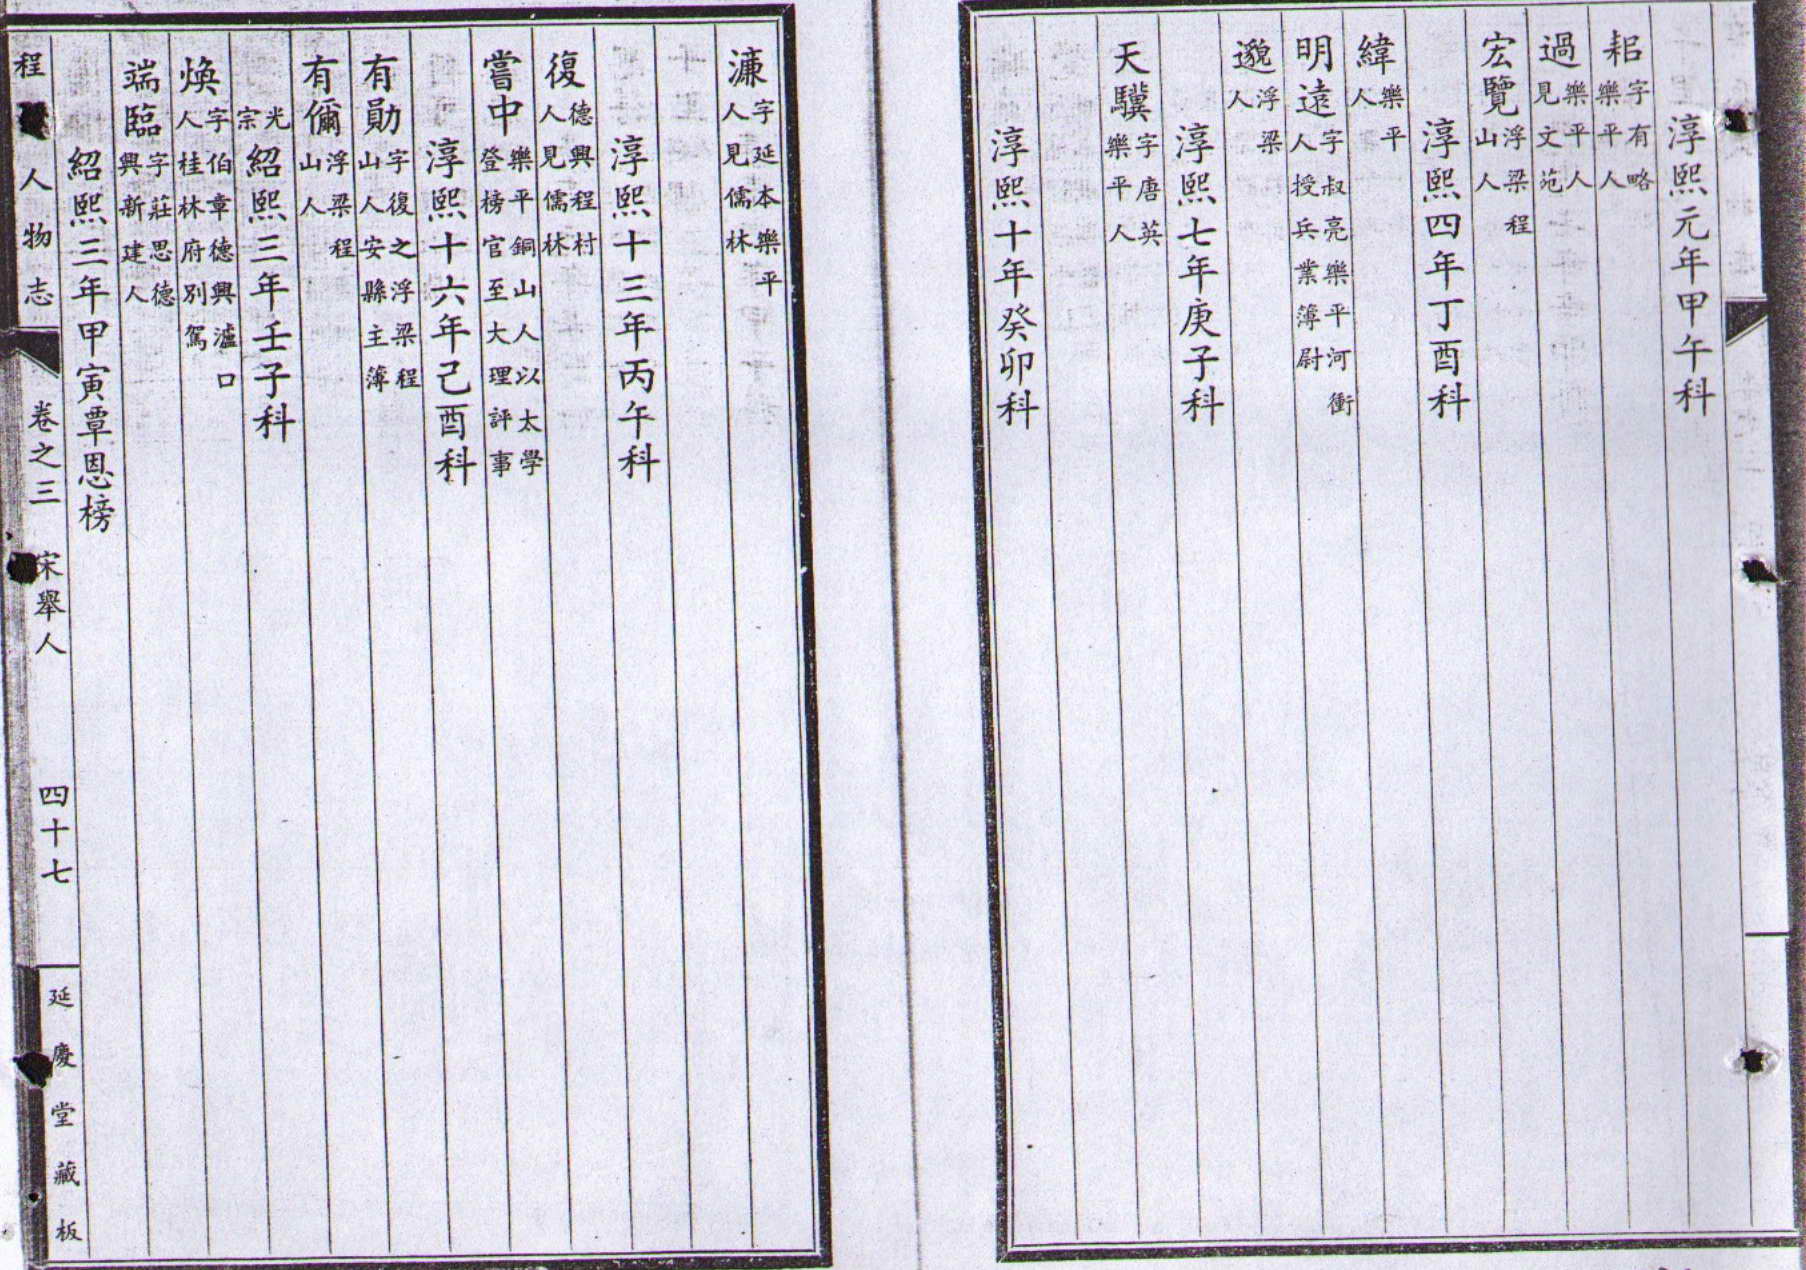 淳熙元年甲午科
耜字有略樂平人
過樂平人見文苑
宏覽浮梁程山人
淳熙四年丁酉科
緯樂平人
明遠字叔亮樂平河衝人授兵業簿尉
邈浮梁人
淳熙七年庚子科
天驥字唐英樂平人
淳熙十年癸卯科
濂字延本樂平人見儒林
淳熙十三年丙午科
復德興程村人見儒林
嘗中樂平銅山人以太學登榜官至大理評事
淳熙十六年己酉科
有勛字復之浮梁程山人安縣主簿
有儞浮梁程山人
光宗紹熙三年壬子科
煥字伯章德興瀘口人桂林府別駕
端臨字莊思德興新建人
紹熙三年甲寅覃恩榜
程 人物志
卷之三 宋舉人
四十七
延慶堂藏板